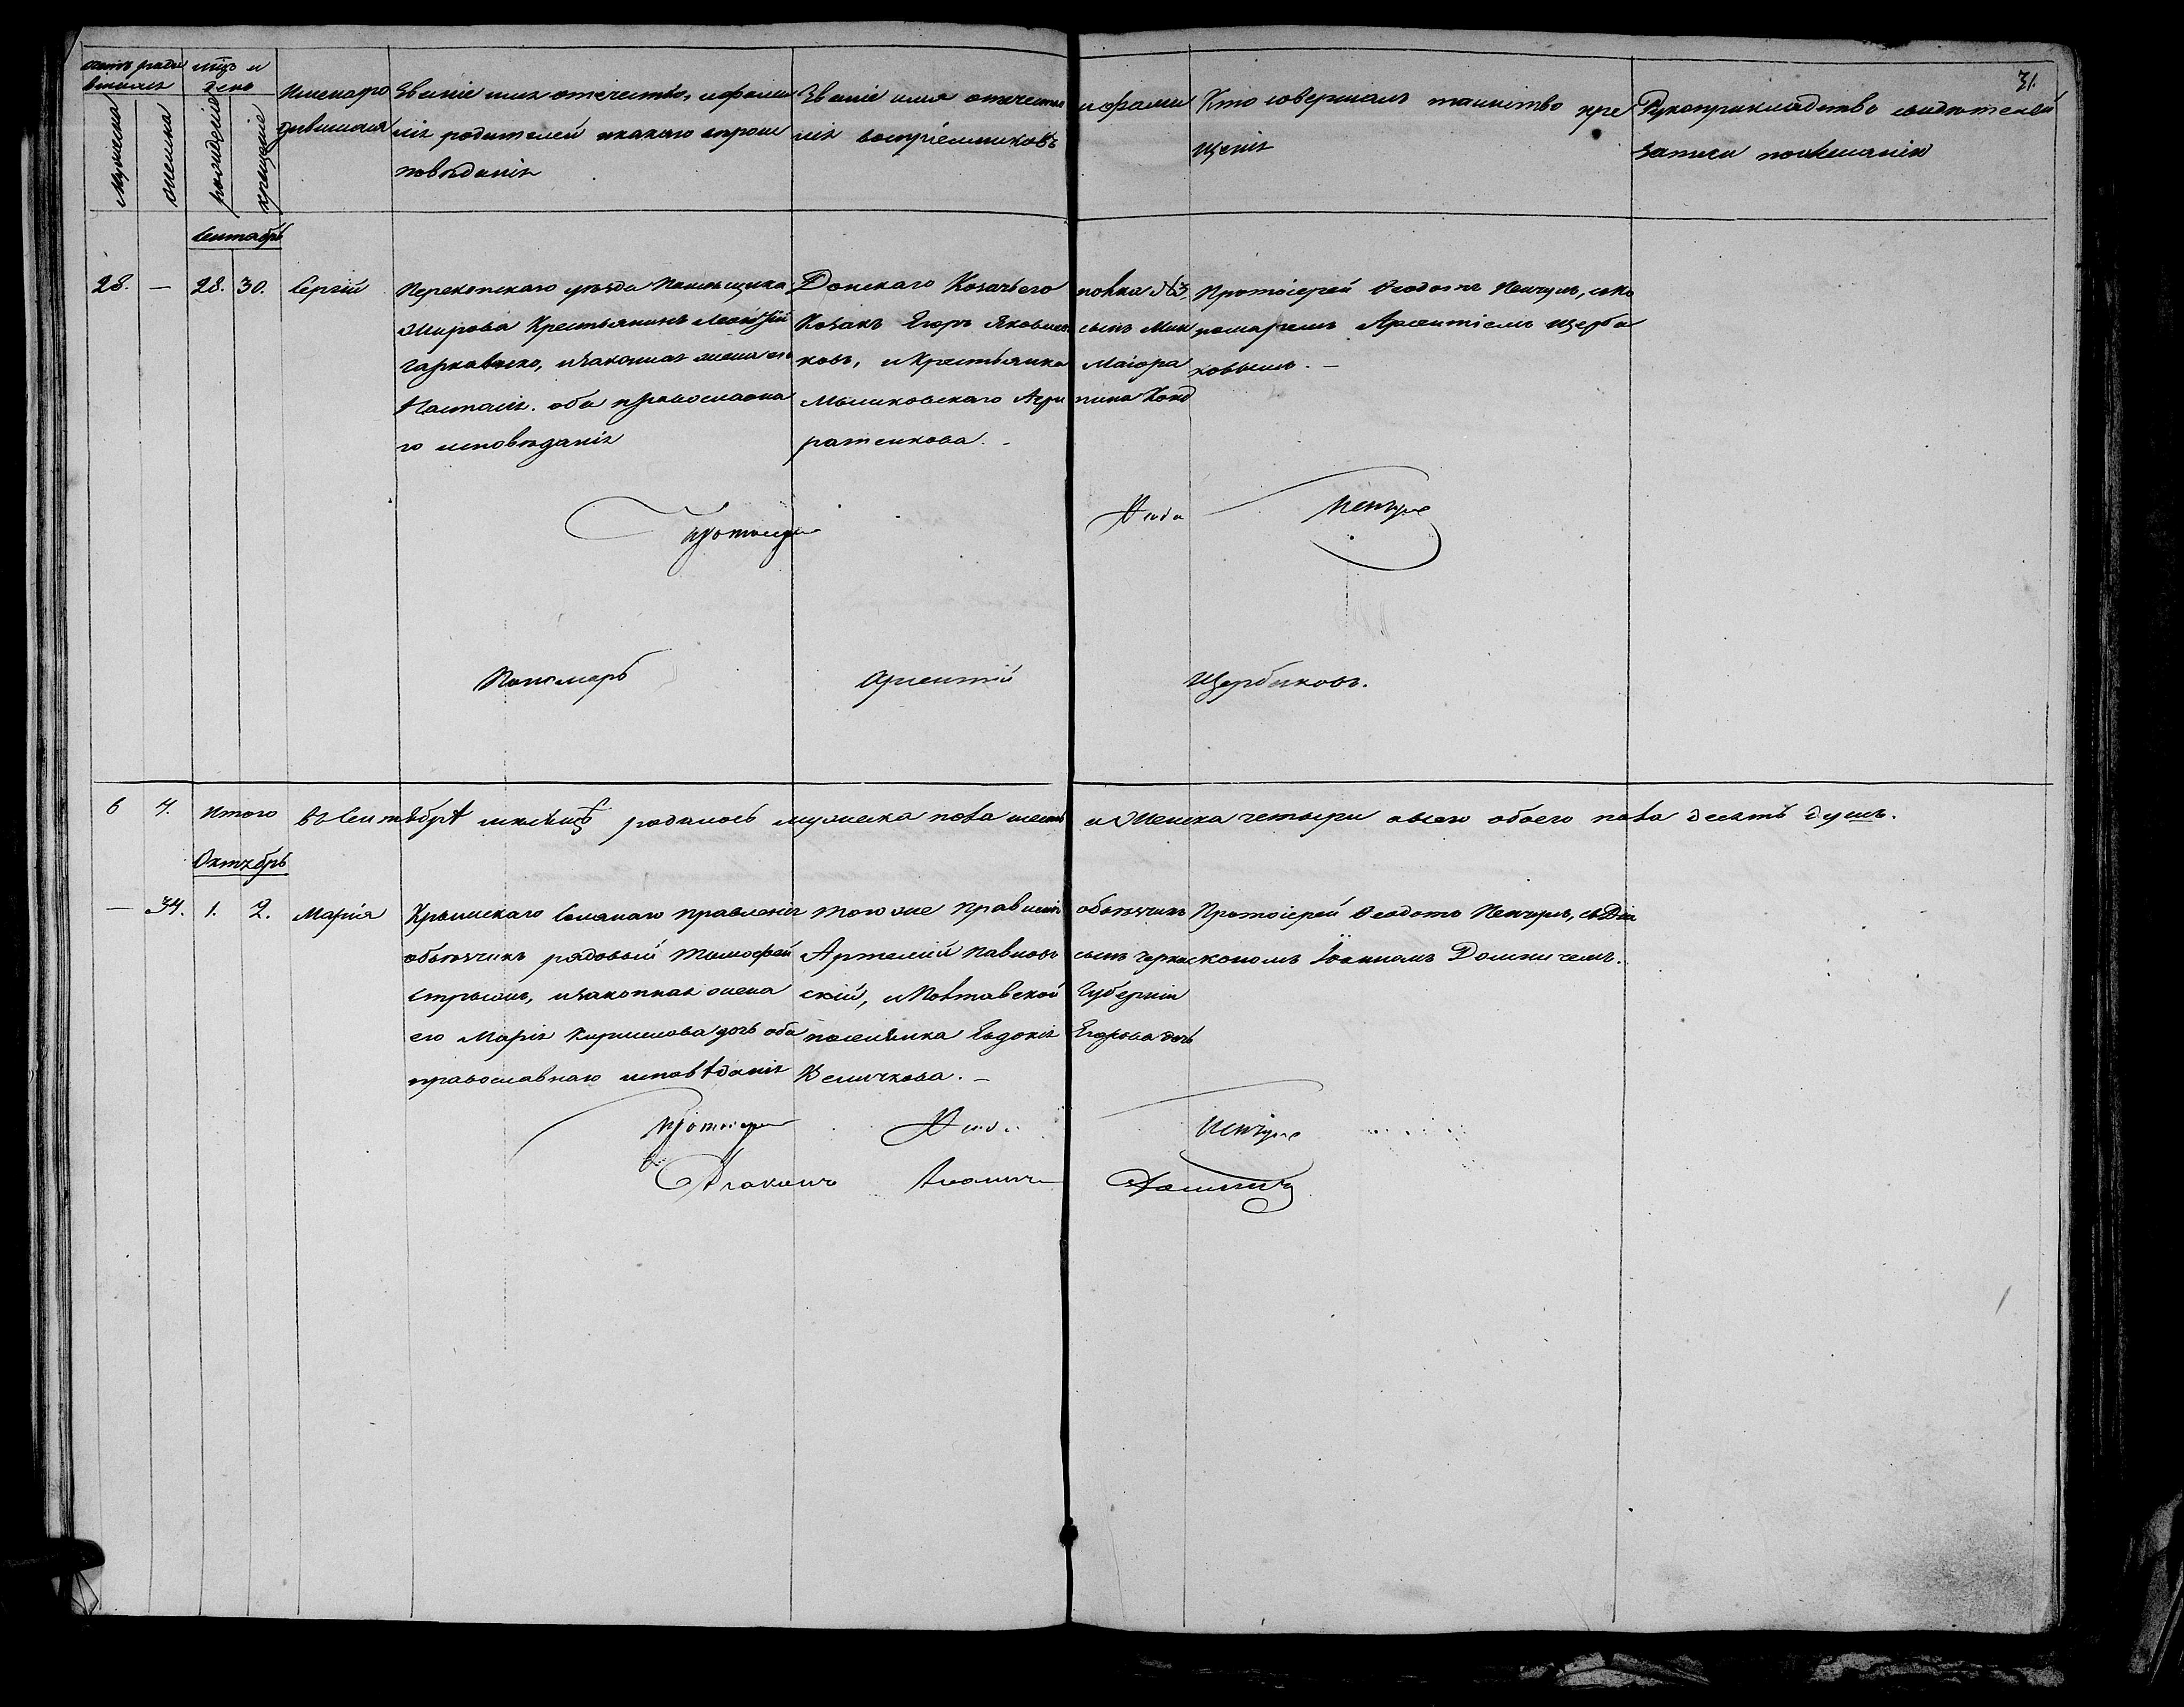 31.
счетъ роди вшихся
мѣц и день
Мужеска
женска
рожденіе
крещеніе
Имена ро
дившихся
Званіе имя отечество, и фами
лія родителей и какого вѣроис
повѣданія
Званіе имя отечество и фами
лія воспріемниковъ
Кто совершалъ таинство кре
щенія
Рукоприкладство свидѣтелей
записи по желанію
Сентябрь
28. — 28. 30. Сергій
Перекопскаго уѣзда Помѣщика
Крестьянинъ
и законная жена его
Наталія. оба православна
го исповѣданія
Донскаго Козачьего полка №3.
Козакъ Егоръ Яковлев сынъ Мин
ковъ, и Крестьянка Маіора
Мысиковскаго Агри пина Конд
ратенкова. -
Протоіерей Ѳеодотъ Пенчулъ, с поно
номаремъ Арсентіемъ Щерба
ковымъ. —
Протоіерей Ѳеодо Пенчулъ
Пономарь Арсентій Щербаковъ.
6 4. Итого в Сентябрѣ мѣсяцѣ родилось мужеска пола шесть и Женска четыри а всего обоего пола десять душъ.
Октябрь
— 34. 1. 2. Марія
Крымскаго Солянаго правленія
объѣзчикъ рядовый Тимофей
и законная жена
его Марія Кирилова дочь оба
православнаго исповѣданія
того же Правленія объѣзчикъ
Артемій Павловъ сынъ Черка
скій, и Полтавской Губерніи
поселянка Евдокія Егорова дочь
Величкова. —
Протоіерей Ѳеодотъ Пенчулъ, съ Діа
кономъ Іоанномъ Домничемъ.
Протоіерей Ѳеодо Пенчулъ
Діаконъ Іоаннъ Домничъ